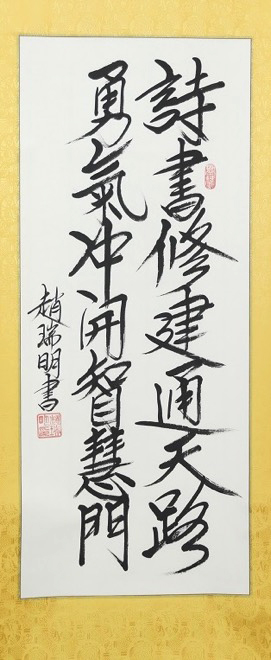 詩書修建通天路
勇氣冲开智慧門
趙瑞明書